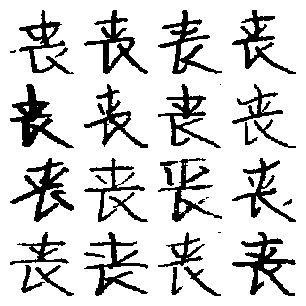 丧丧丧丧
丧丧丧丧
丧丧丧丧
丧丧丧丧